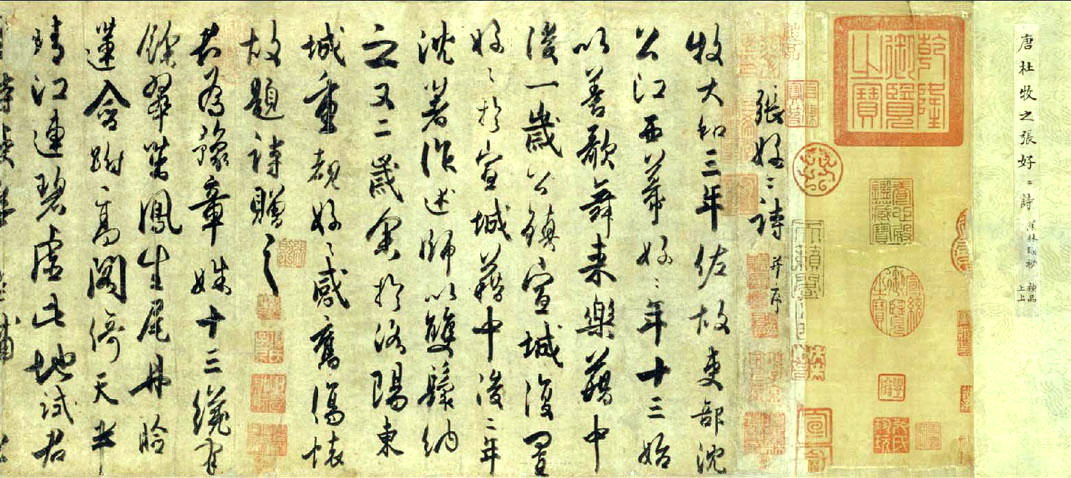 唐杜牧之張好〻詩
上上
乾隆御覽之寶
張好〻詩 并序
牧大和三年佐故吏部沈
公江西幕好〻年十三始
以善歌舞來樂籍中
後一歲公鎮宣城復置
好〻於宣城籍中後二年
沈著作述師以雙鬟納
之又二歲余於洛陽東
城重覩好〻感舊傷懷
故題詩贈之
君為豫章姝十三纔有
餘翠茁鳳生尾丹臉
蓮含跗高閣倚天半
晴江連碧虛此地試君